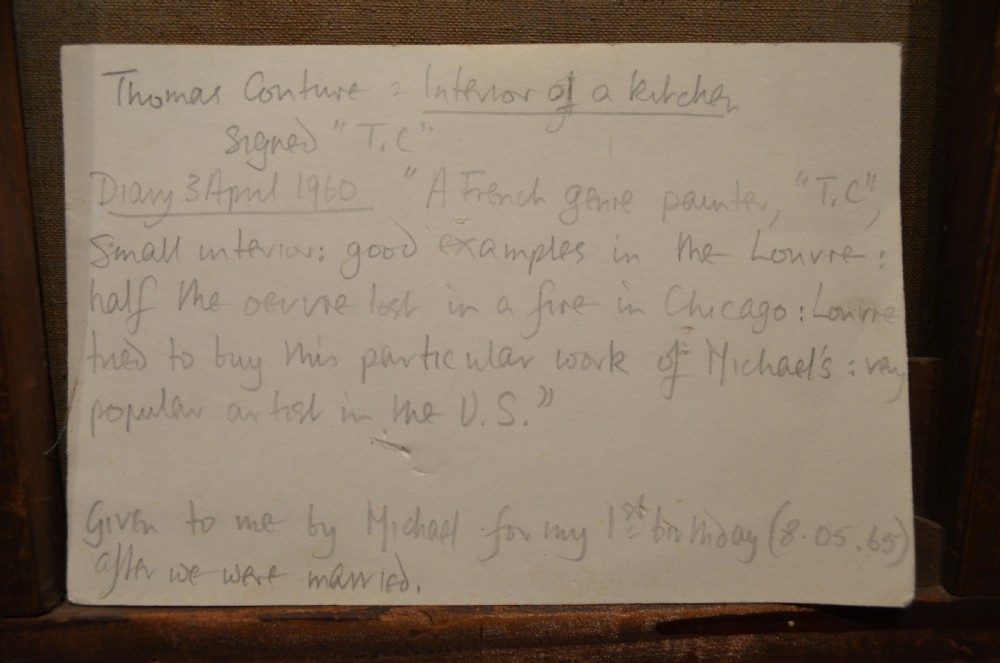 Thomas Couture = Interior of a kitchen
signed "T.C"
Diary 3 April 1960 "A French genre painter, "T.C",
Small interior: good examples in the Louvre:
half the oeuvre lost in a fire in Chicago: Louvre
tried to buy this particular work of Michael's: very
popular artist in the U.S."
Given to me by Michael for my 1st birthday (8.05.65)
after we were married.